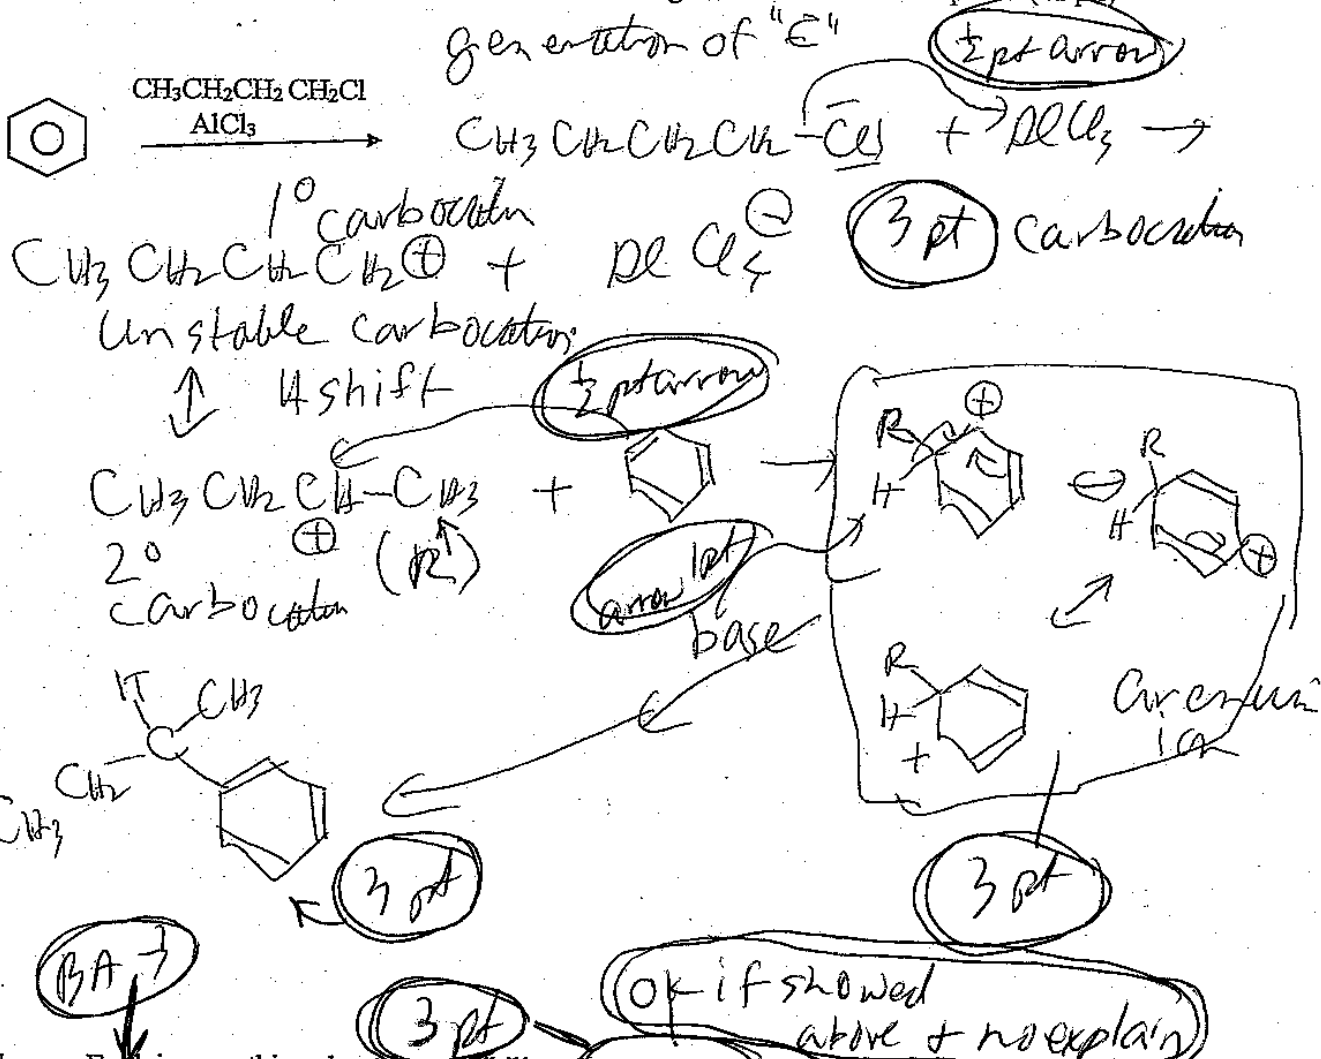 generation of "E"
½ pt arrow
CH3CH2CH2 CH2Cl
AlCl3
CH3 CH2 CH2 CH2 – Cl + AlCl3 →
1° carbocation
CH3 CH2 CH2 CH2 ⊕ + AlCl4 ⊖
3 pt carbocation
unstable carbocation
↕ H shift
½ pt arrow
CH3 CH2 CH – CH3 +
⊕
(R)
2°
carbocation
arrow 1pt
base
R
H
⊕
↔
R
H
⊕
R
H
+
arenium
ion
H
CH3
C
CH2
CH3
3 pt
3 pt
BA
3 pt
OK if showed
above + no explain